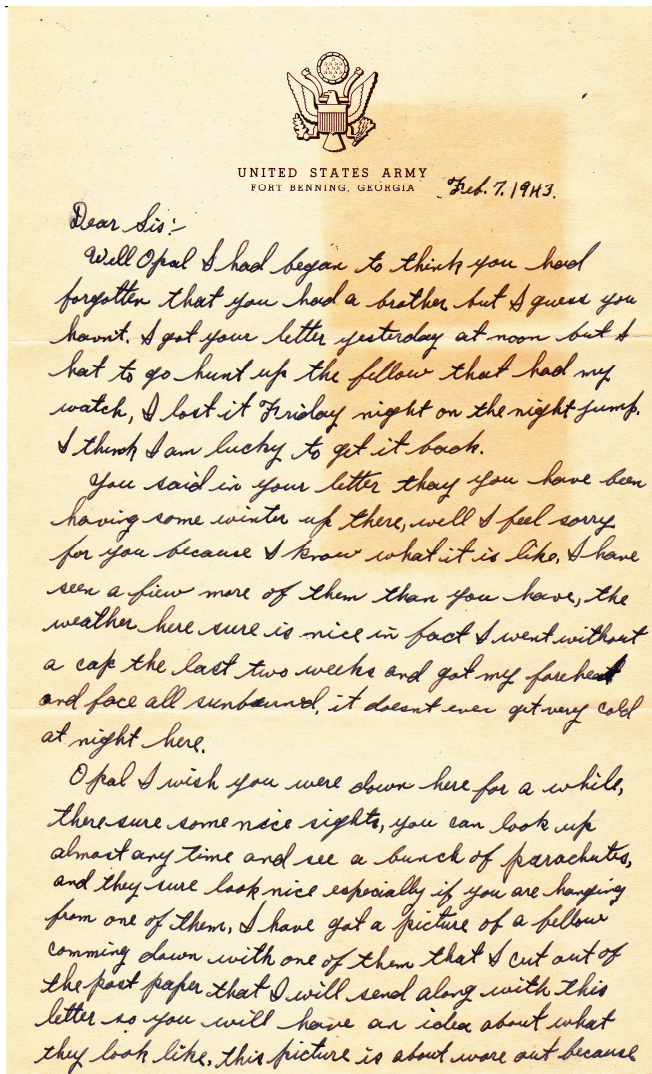 UNITED STATES ARMY
FORT BENNING, GEORGIA
Feb. 7. 1943.
Dear Sis:-
Well Opal I had began to think you had
forgotten that you had a brother but I guess you
havn't. I got your letter yesterday at noon but I
hat to go hunt up the fellow that had my
watch, I lost it Friday night on the night jump.
I think I am lucky to get it back.
You said in your letter thay you have been
having some winter up there, well I feel sorry
for you because I know what it is like. I have
seen a fiew more of them than you have, the
weather here sure is nice in fact I went without
a cap the last two weeks and got my forehead
and face all sunbaurnd, it doesnt ever get very cold
at night here.
Opal I wish you were down here for a while,
there sure some nice sights, you can look up
almost any time and see a bunch of parachutes,
and they sure look nice especially if you are hanging
from one of them, I have got a picture of a fellow
comming down with one of them that I cut out of
the post paper that I will send along with this
letter so you will have an idea about what
they look like, this picture is about wore out because